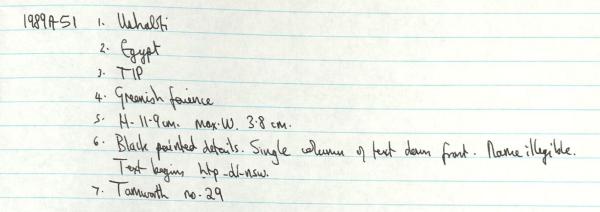 1989A51 1. Ushabti
2. Egypt
3. TIP
4. Greenish faience
5. H. 11.9cm. max. W. 3.8 cm.
6. Black painted details. Single column of text down front. Name illegible.
Text begins htp-di-nsw.
7. Tamworth no. 29